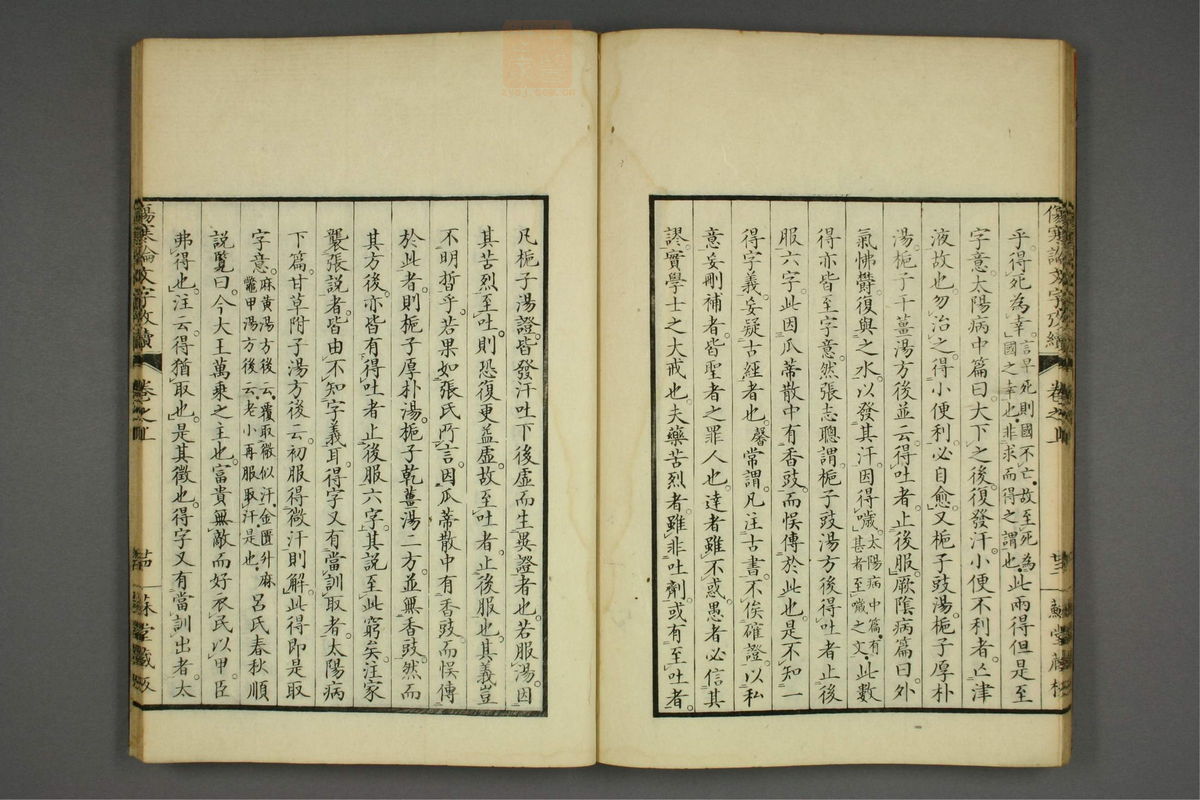 乎。得死為幸。言早死則國不亡。故至死為國之幸也。非求而得之謂也。此兩得但是至
字意。太陽病中篇曰。大下之後。復發汗。小便不利者。亡津
液故也。勿治之。得小便利。必自愈。又梔子豉湯。梔子厚朴
湯。梔子干薑湯方後並云。得吐者。止後服。厥陰病篇曰。外
氣怫欝。復與之水。以發其汗。因得噦。太陽病中篇。有甚者至噦之文。此數
得亦皆至字意。然張志聰謂。梔子豉湯方後得吐者止後
服六字。此因瓜蒂散中有香豉。而悞傳於此也。是不知一
得字義。妄疑古經者也。馨常謂。凡注古書。不俟確證。以私
意妄刪補者。皆聖者之罪人也。達者雖不惑。愚者必信其
謬。實學士之大戒也。夫藥苦烈者。雖非吐劑。或有至吐者。
傷寒論文字攷續
卷之上
廿三
蘇堂藏板
凡梔子湯證。皆發汗吐下後。虛而生異證者也。若服湯。因
其苦烈至吐。則恐復更益虛。故至吐者。止後服也。其義豈
不明晢乎。若果如張氏所言。因瓜蒂散中有香豉。而悞傳
於此者。則梔子厚朴湯。梔子乾薑湯二方。並無香豉。然而
其方後。亦皆有得吐者止後服六字。其說至此窮矣。注家
襲張說者。皆由不知字義耳。得字又有當訓取者。太陽病
下篇。甘草附子湯方後云。初服得微汗則解。此得即是取
字意。麻黄湯方後云。覆取微似汗。金匱升麻鼈甲湯方後云。老小再服取汗。是也。呂氏春秋順
說覽曰。今大王萬乘之主也。富貴無敵。而好衣民以甲。臣
弗得也。注云。得猶取也。是其徵也。得字又有當訓出者。太
傷寒論文字攷續
卷之上
廿四
蘇堂藏板